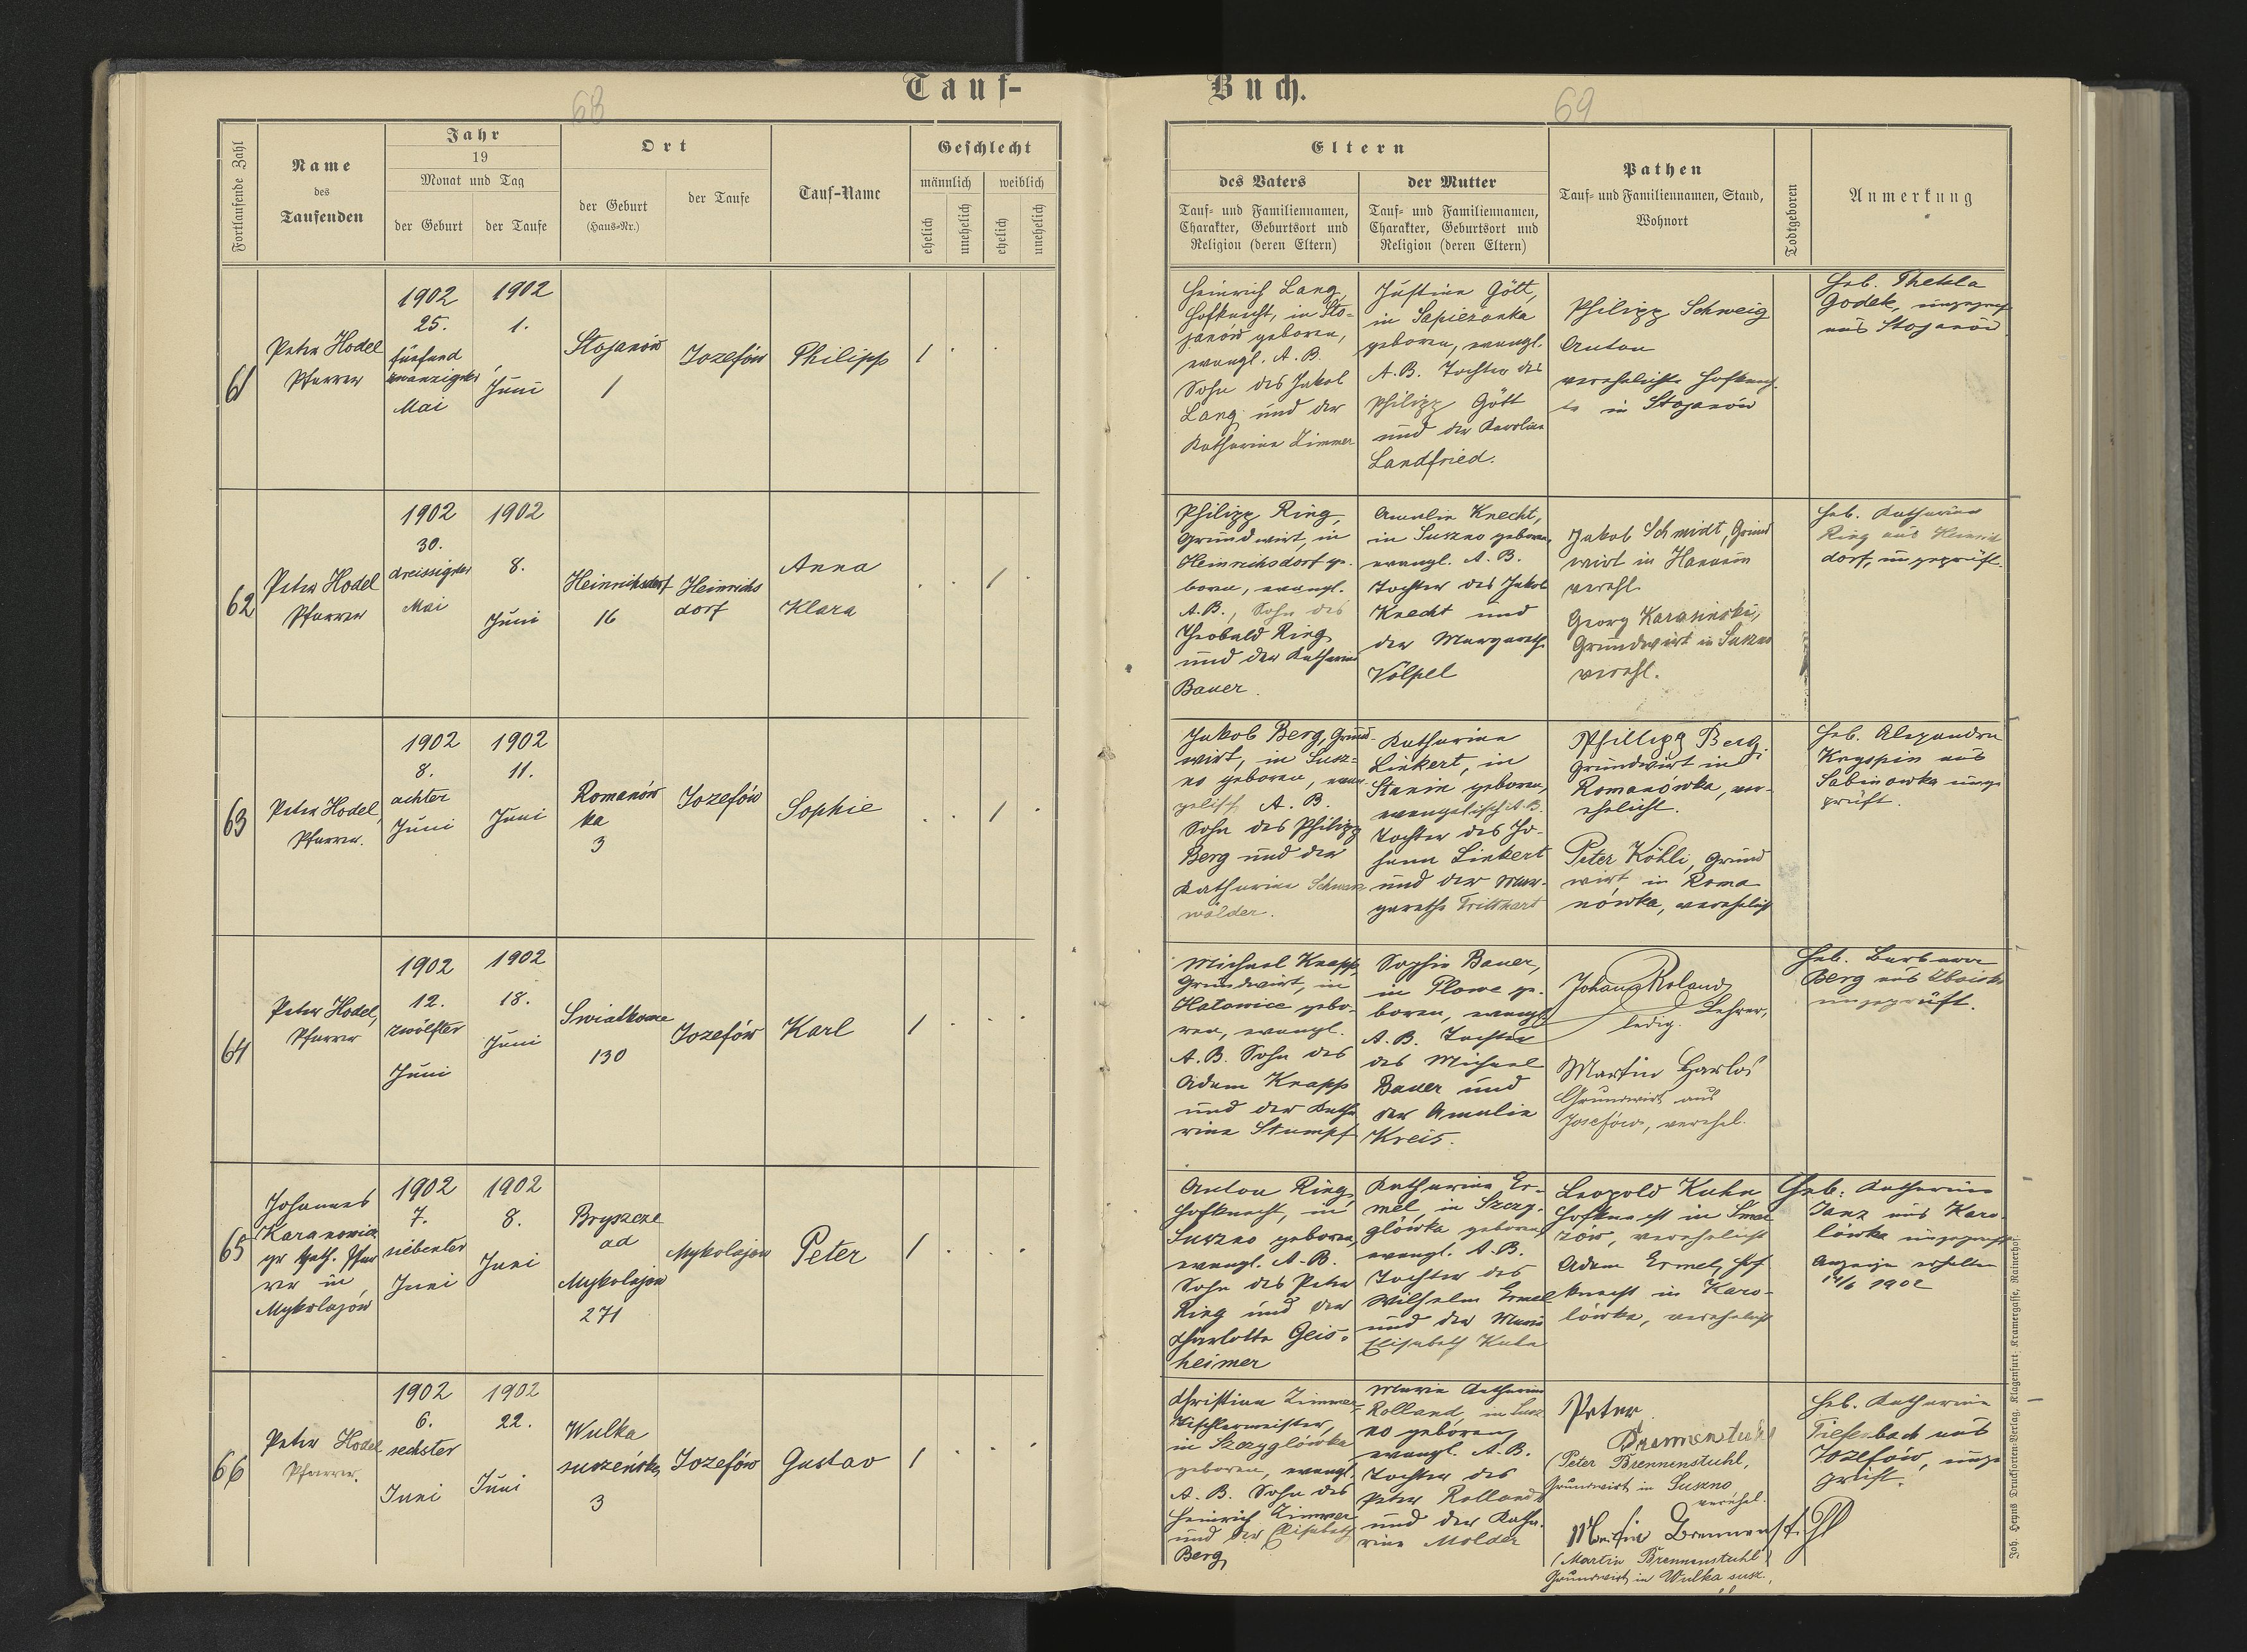 68
Tauf-
Fortlaufende Zahl
Name
des
Taufenden
Jahr
19
Monat und Tag
der Geburt
der Taufe
Ort
der Geburt
(Haus-Nr.)
der Taufe
Tauf-Name
Geschlecht
männlich
weiblich
ehelich
unehelich
ehelich
unehelich
61
Peter Hodel
Pfarrer
1902
25.
fünfund
zwanzigster
Mai
1902
1.
Juni
Stojanów
1
Jozefów
Philipp
1
62
Peter Hodel
Pfarrer
1902
30.
dreissigster
Mai
1902
8.
Juni
Heinrichsdorf
16
Heinrichs
dorf
Anna
Klara
1
63
Peter Hodel,
Pfarrer.
1902
8.
achter
Juni
1902
11.
Juni
Romanów
ka
3
Jozefów
Sophie
1
64
Peter Hodel,
Pfarrer
1902
12.
zwölfter
Juni
1902
18.
Juni
130
Jozefów
Karl
1
65
Johannes
Karanowicz
gr. kath. Pfar
rer in
Mykolajów
1902
7.
siebenter
Juni
1902
8.
Juni
Bryszcze
ad
Mykolajow
271
Mykolajow
Peter
1
66
Peter Hodel
Pfarrer.
1902
6.
sechster
Juni
1902
22.
Juni
Wulka
suszeńska
3
Jozefów
Gustav
1
69
Buch.
Eltern
des Vaters
Tauf- und Familiennamen,
Charakter, Geburtsort und
Religion (deren Eltern)
der Mutter
Tauf- und Familiennamen,
Charakter, Geburtsort und
Religion (deren Eltern)
Pathen
Tauf- und Familiennamen, Stand,
Wohnort
Todtgeboren
Anmerkung
Heinrich Lang,
Hofknecht, in Sto-
janów geboren,
evangl. A. B.
Sohn des Jakob
Lang und der
Katharina Zimmer
Justine Gött,
in Sapiezanka
geboren, evangl.
A. B. Tochter des
Philipp Gött
und der Karolina
Landfried.
Philipp Schweig
Anton
verehelichte Hofknech-
te in Stojanów
Heb. Thekla
Godek, ungeprüft
aus Stojanów
Philipp Ring,
Grundwirt, in
Heinrichsdorf ge-
boren, evangl.
A. B., Sohn des
Theobald Ring
und der Katharina
Bauer.
Amalie Knecht,
in Suszno geboren,
evangl. A. B.
Tochter des Jakob
Knecht und
der Margareth
Völpel
Jakob Schmidt, Grund
wirt in Hanunin
verehl.
Georg Karasinski,
Grundwirt in Suszno
verehl.
Heb. Katharina
Ring aus Heinrichs
dorf, ungeprüft.
Jakob Berg, Grund-
wirt, in Susz-
no geboren, evan-
gelisch A. B.
Sohn des Philipp
Berg und der
Katharina Schwarz
wälder.
Katharina
Linkert, in
Stanin geboren,
evangelisch A. B.
Tochter des Jo-
hann Linkert
und der Mar-
gareth Trittthart
Phillipp Berg.
Grundwirt in
Romanówka, ver-
ehelicht.
Peter Köhli, Grund
wirt in Roma
nówka, verehelicht
Heb. Alexandra
Kryspin aus
Sabinowka unge
prüft.
Michael Knapp,
Grundwirt, in
Hatowice gebo-
ren, evangl.
A. B. Sohn des
Adam Knapp
und der Katha
rina Stumpf
Sophie Bauer,
in Plowe ge-
boren, evangl.
A. B. Tochter
des Michael
Bauer und
der Amalie
Kreis.
Johann Roland
Lehrer,
ledig.
Martin Harlos
Grundwirt aus
Josefów, verehel.
Heb. Barbara
Berg aus
ungeprüft.
Anton Ring,
Hofknecht, in
Suszno geboren,
evangl. A. B.
Sohn des Peter
Ring und der
Charlotte Geis-
heimer
Katharina Er-
mel, in Szczy-
glówka geboren,
evangl. A. B.
Tochter des
Wilhelm Ermel
und der Maria
Elisabeth Kuhn
Leopold Kuhn
Hofknecht in
verehelicht
Adam Ermel, Hof
knecht in Karo-
lówka, verehelicht
Heb: Katharina
Janz aus Karo-
lówka ungeprüft
Anzeige erhalten
14/6 1902
Christian Zimmer
Tischlermeister,
in Szczyglówka
geboren, evangl.
A. B. Sohn des
Heinrich Zimmer
und der Elisabeth
Berg
Maria Katharina
Rolland, in Susz
no geboren,
evangl. A. B.
Tochter des
Peter Rolland
und der Katha-
rina Molder
Peter
Brennenstuhl
(Peter Brennenstuhl,
Grundwirt in Suszno
verehel.
Martin Brennenstuhl
(Martin Brennenstuhl)
Grundwirt in Wulka susz.,
Heb. Katharina
Tiefenbach aus
Jozefów, unge
prüft.
Joh. Heyns Drucksorten-Verlag, Klagenfurt; Kramergasse, Rainerhof.